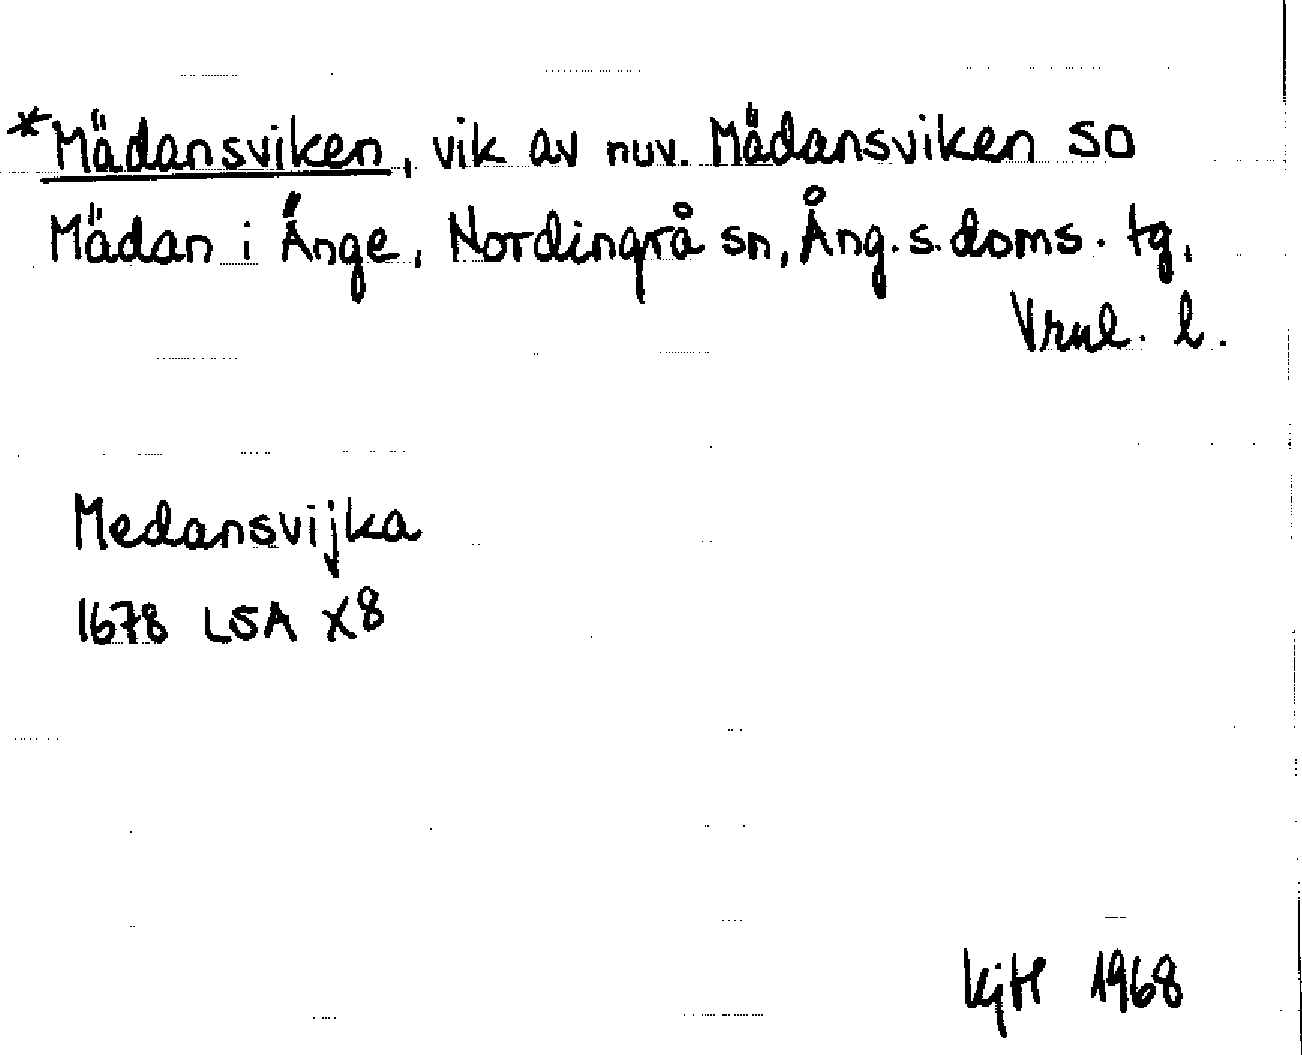 *Mädansviken, vik av nuv. Mädansviken SO
Mädan i Änge, Nordingrå sn, Ång. s. doms. tg,
Vrml. l.
Medansvijka
1678 LSA X8
KjH 1968